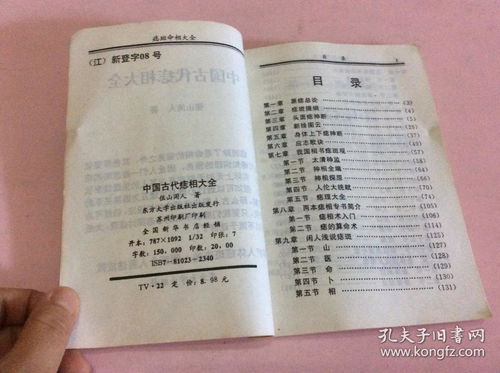 痣斑命相大全
（江）新登字08号
中国古代痣相大全
伍山闲人 著
中国古代痣相大全
伍山闲人 著
东方大学出版社出版发行
苏州印刷厂印刷
全国新华书店经销
开本：787×1092 1/32 印张：7
字数：150,000 印数：20,00
ISB7—81023—2340
TV·22 定价：8.98元
目录
目录
第一章 原痣总论 (3)
第二章 痣斑摘锦
第三章 头面痣神断
第四章 新绘图云
第五章 身体上下痣神断
第六章 应志歌诀
第七章 我国相书痣斑观
第一节 太清神监
第二节 神相全编
第三节 神相探原
第四节 人伦大统赋
第五节 痣理大全
第八章 两本痣相专书简介
第一节 痣相术入门
第二节 痣的算命术
第九章 闲人浅说痣斑
第一节 山 (125)
第二节 医 (128)
第三节 命 (129)
第四节 卜 (130)
第五节 相 (131)
孔夫子旧书网
www.kongfz.com